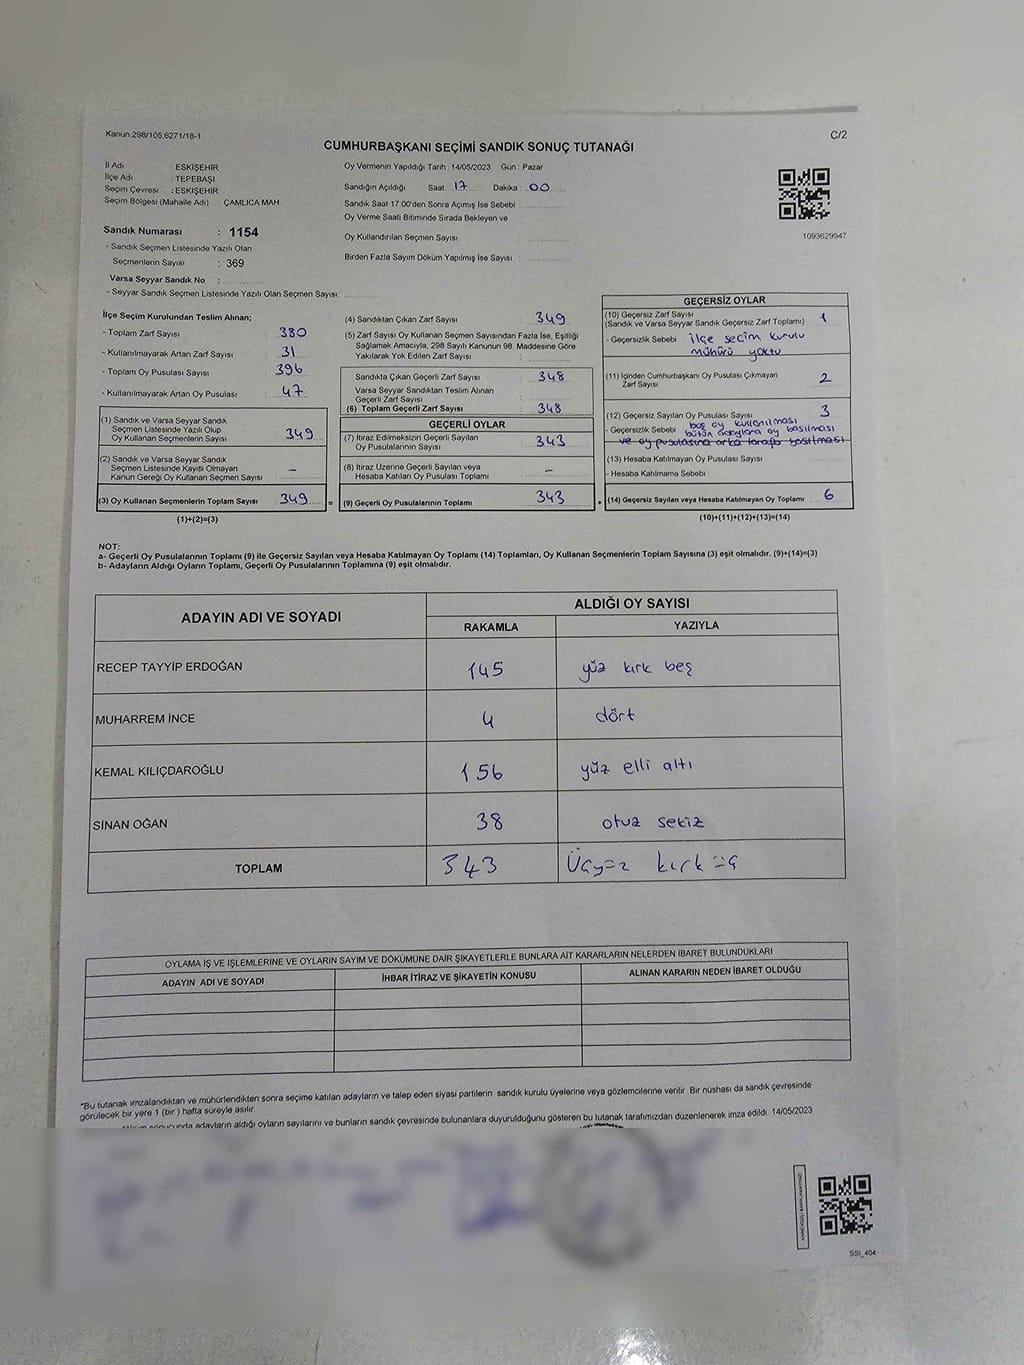 Kanun 298/105,6271/18-1
C/2
CUMHURBAŞKANI SEÇİMİ SANDIK SONUÇ TUTANAĞI
İl Adı : ESKİŞEHİR
İlçe Adı : TEPEBAŞI
Seçim Çevresi : ESKİŞEHİR
Seçim Bölgesi (Mahalle Adı) : ÇAMLICA MAH
Sandık Numarası : 1154
- Sandık Seçmen Listesinde Yazılı Olan
Seçmenlerin Sayısı : 369
Varsa Seyyar Sandık No :
- Seyyar Sandık Seçmen Listesinde Yazılı Olan Seçmen Sayısı
Oy Vermenin Yapıldığı Tarih : 14/05/2023 Gün : Pazar
Sandığın Açıldığı Saat 17 Dakika : 00
Sandık Saat 17:00'den Sonra Açımış İse Sebebi :
Oy Verme Saati Bitiminde Sırada Bekleyen ve
Oy Kullandırılan Seçmen Sayısı :
Birden Fazla Sayım Döküm Yapılmış İse Sayısı :
1093629947
İlçe Seçim Kurulundan Teslim Alınan;
- Toplam Zarf Sayısı : 380
- Kullanılmayarak Artan Zarf Sayısı : 31
- Toplam Oy Pusulası Sayısı : 396
- Kullanılmayarak Artan Oy Pusulası : 47
(1) Sandık ve Varsa Seyyar Sandık
Seçmen Listesinde Yazılı Olup
Oy Kullanan Seçmenlerin Sayısı : 349
(2) Sandık ve Varsa Seyyar Sandık
Seçmen Listesinde Kayıtlı Olmayan
Kanun Gereği Oy Kullanan Seçmen Sayısı : -
(3) Oy Kullanan Seçmenlerin Toplam Sayısı : 349 =
(1)+(2)=(3)
(4) Sandıktan Çıkan Zarf Sayısı : 349
(5) Zarf Sayısı Oy Kullanan Seçmen Sayısından Fazla İse, Eşitliği
Sağlamak Amacıyla, 298 Sayılı Kanunun 98. Maddesine Göre
Yakılarak Yok Edilen Zarf Sayısı :
Sandıkta Çıkan Geçerli Zarf Sayısı : 348
Varsa Seyyar Sandıktan Teslim Alınan
Geçerli Zarf Sayısı :
(6) Toplam Geçerli Zarf Sayısı : 348
GEÇERLİ OYLAR
(7) İtiraz Edilmeksizin Geçerli Sayılan
Oy Pusulalarının Sayısı : 343
(8) İtiraz Üzerine Geçerli Sayılan veya
Hesaba Katılan Oy Pusulası Toplamı : -
(9) Geçerli Oy Pusulalarının Toplamı : 343 +
GEÇERSİZ OYLAR
(10) Geçersiz Zarf Sayısı : 1
(Sandık ve Varsa Seyyar Sandık Geçersiz Zarf Toplamı)
- Geçersizlik Sebebi : ilçe seçim kurulu
mühürü yoktu
(11) İçinden Cumhurbaşkanı Oy Pusulası Çıkmayan
Zarf Sayısı : 2
(12) Geçersiz Sayılan Oy Pusulası Sayısı : 3
- Geçersizlik Sebebi : boş oy kullanılması
bütün adaylara oy basılması
ve oy pusulasına arka tarafa basılması
(13) Hesaba Katılmayan Oy Pusulası Sayısı :
- Hesaba Katılmama Sebebi :
(14) Geçersiz Sayılan veya Hesaba Katılmayan Oy Toplamı : 6
(10)+(11)+(12)+(13)=(14)
NOT:
a- Geçerli Oy Pusulalarının Toplamı (9) ile Geçersiz Sayılan veya Hesaba Katılmayan Oy Toplamı (14) Toplamları, Oy Kullanan Seçmenlerin Toplam Sayısına (3) eşit olmalıdır. (9)+(14)=(3)
b- Adayların Aldığı Oyların Toplamı, Geçerli Oy Pusulalarının Toplamına (9) eşit olmalıdır.
ADAYIN ADI VE SOYADI
ALDIĞI OY SAYISI
RAKAMLA YAZIYLA
RECEP TAYYİP ERDOĞAN 145 yüz kırk beş
MUHARREM İNCE 4 dört
KEMAL KILIÇDAROĞLU 156 yüz elli altı
SİNAN OĞAN 38 otuz sekiz
TOPLAM 343 Üçyüz kırk üç
OYLAMA İŞ VE İŞLEMLERİNE VE OYLARIN SAYIM VE DÖKÜMÜNE DAİR ŞİKAYETLERLE BUNLARA AİT KARARLARIN NELERDEN İBARET BULUNDUKLARI
ADAYIN ADI VE SOYADI İHBAR İTİRAZ VE ŞİKAYETİN KONUSU ALINAN KARARIN NEDEN İBARET OLDUĞU
*Bu tutanak imzalandıktan ve mühürlendikten sonra seçime katılan adayların ve talep eden siyasi partilerin sandık kurulu üyelerine veya gözlemcilerine verilir. Bir nüshası da sandık çevresinde
görülecek bir yere 1 (bir) hafta süreyle asılır.
sonucunda adayların aldığı oyların sayılarını ve bunların sandık çevresinde bulunanlara duyurulduğunu gösteren bu tutanak tarafımızdan düzenlenerek imza edildi. 14/05/2023
SSI_404